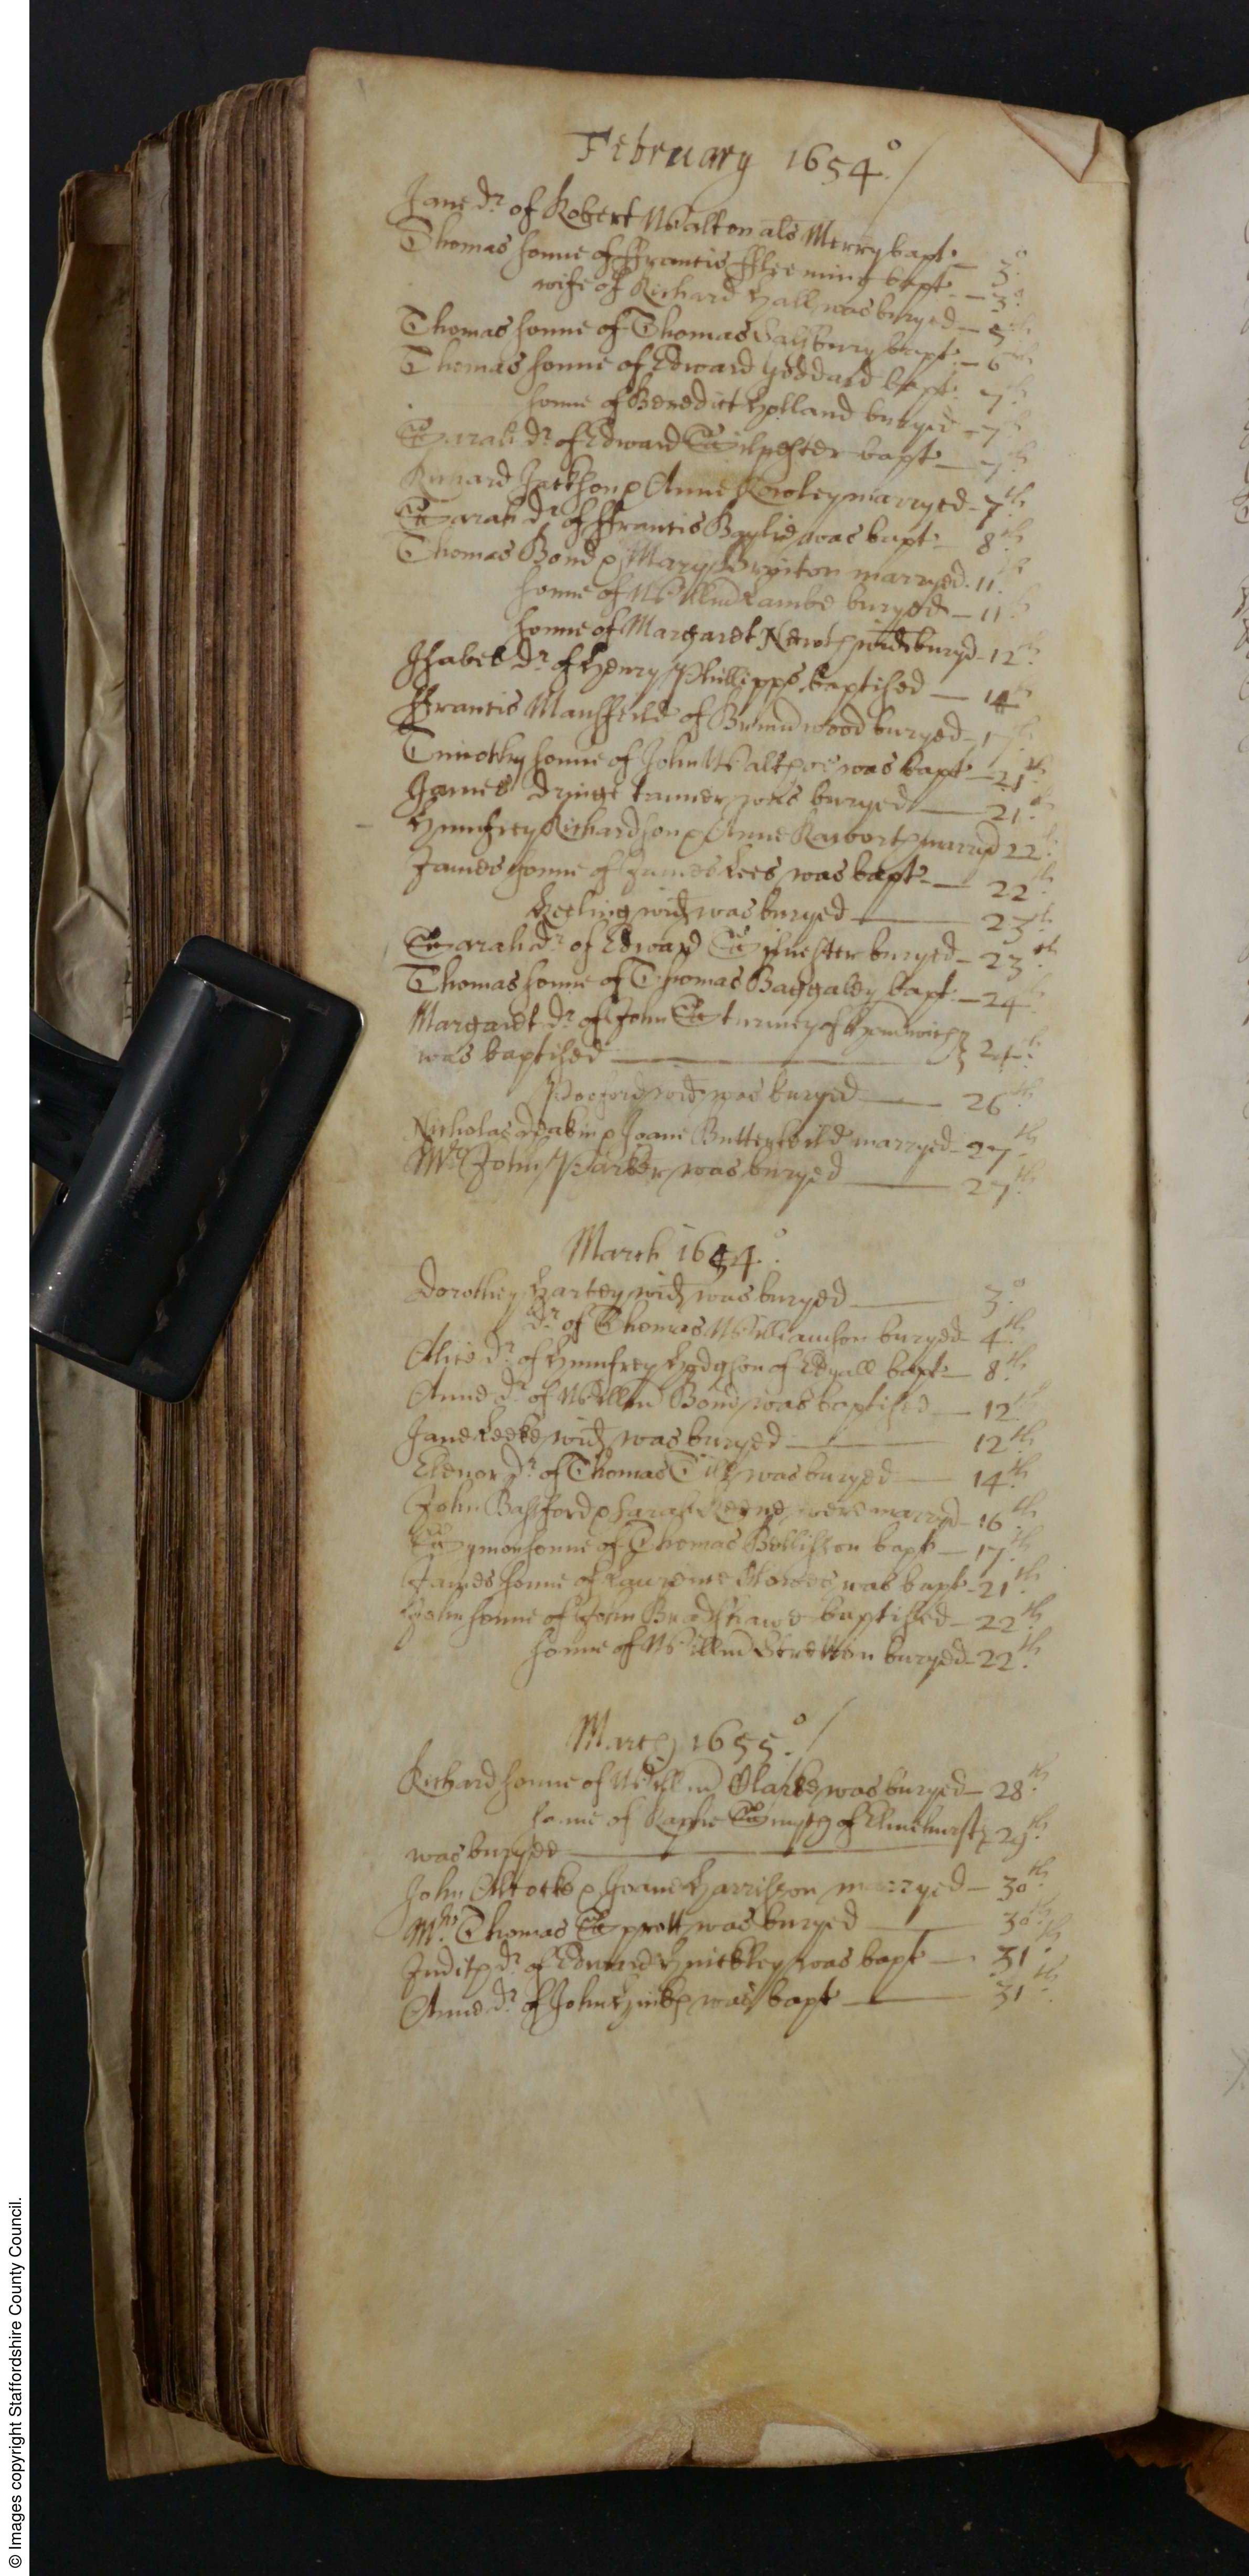 February 1654°
Jane dr of Robert Walton als Merry bapt 3°
Thomas sonne of ffrancis ffleeming bapt 3°
wife of Richard Hall was buryed 5th
Thomas sonne of Thomas Salsbury bapt 6th
Thomas sonne of Edward Goddard bapt 7th
sonne of Benedict Holland buryed 7th
Sarah dr of Edward Silvester bapt 7th
Richard Jackson & Anne Rowley marryed 7th
Sarah dr of ffrancis Baylie was bapt 8th
Thomas Bond & Mary Brinton marryed 11th
sonne of Willm Lambe buryed 11th
sonne of Margaret wid buryd 12th
Isabel dr of Henry Phillipps baptised 14th
ffrancis Mansfeild of wood buryed 17th
Timothy sonne of John was bapt 21th
James Dringe tanner was buryed 21th
Humfrey Richardson & Anne marryd 22th
James sonne of James Lees was bapt 22th
Keeling wid was buryed 23th
Sarah dr of Edward Silvester buryed 23th
Thomas sonne of Thomas Baggaley bapt 24th
Margaret dr of John of
was baptised 24th
wid was buryed 26th
Nicholas Deakin & Joane Butterfeild marryed 27th
Mr John Parker was buryed 27th
March 1654°
Dorothy wid was buryed 3°
dr of Thomas Williamson buryed 4th
Alice dr of Humfrey Hodgson of Edyall bapt 8th
Anne dr of Willm Bond was baptised 12th
Jane Leeke wid was buryed 12th
Elenor dr of Thomas was buryed 14th
John Bassford & Sarah were marryd 16th
Symon sonne of Thomas Bellison bapt 17th
James sonne of Laurence was bapt 21th
John sonne of John Bradshawe baptised 22th
sonne of Willm Stretton buryed 22th
March 1655°
Richard sonne of Willm Clarke was buryed 28th
sonne of Raphe Smyth of Elmehurst
was buryed 29th
John Alcocke & Joane Harrisson marryed 30th
Thomas Sprott was buryed 30th
Judith dr of Edward Hinckley was bapt 31th
Anne dr of John was bapt 31th
© Images copyright Staffordshire County Council.